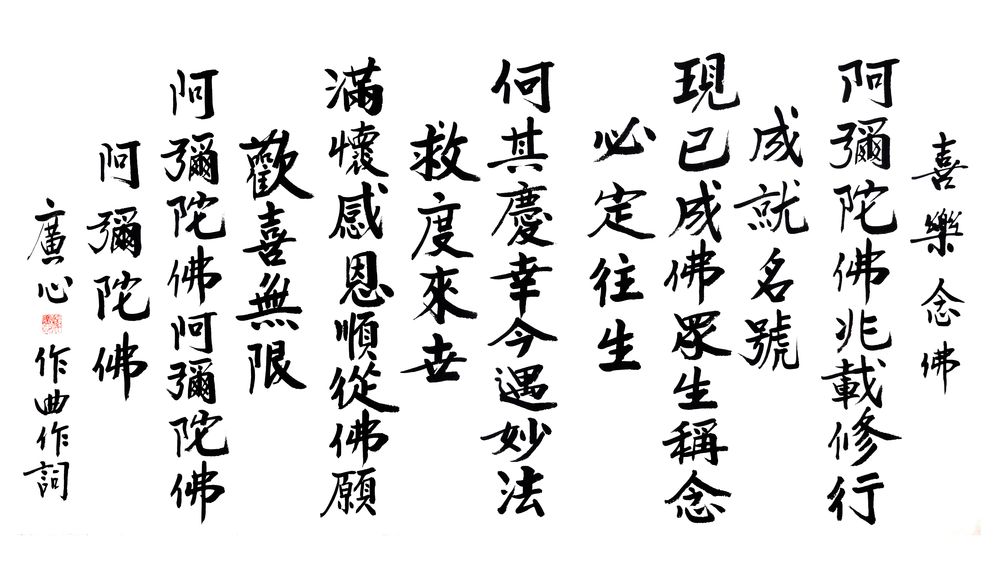 喜樂念佛
阿彌陀佛兆載修行
成就名號
現已成佛眾生稱念
必定往生
何其慶幸今遇妙法
救度來世
滿懷感恩順從佛願
歡喜無限
阿彌陀佛阿彌陀佛
阿彌陀佛
廣心
作曲作詞